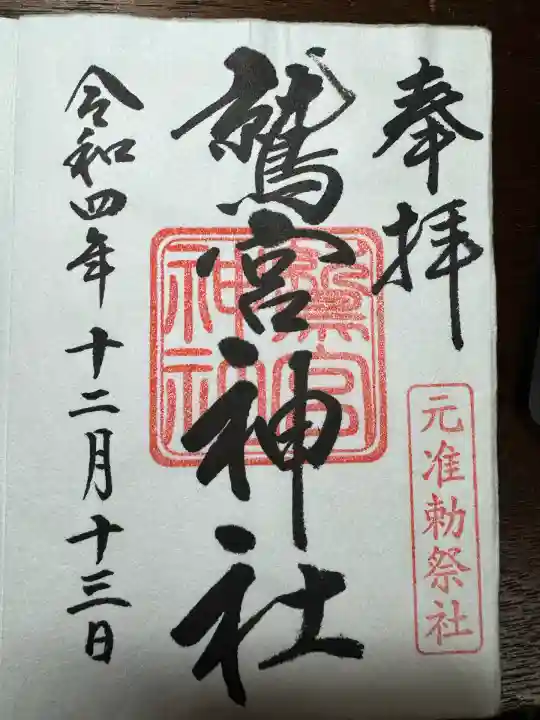 奉拝
元准勅祭社
鷲宮神社
鷲宮
神社
令和四年十二月十三日